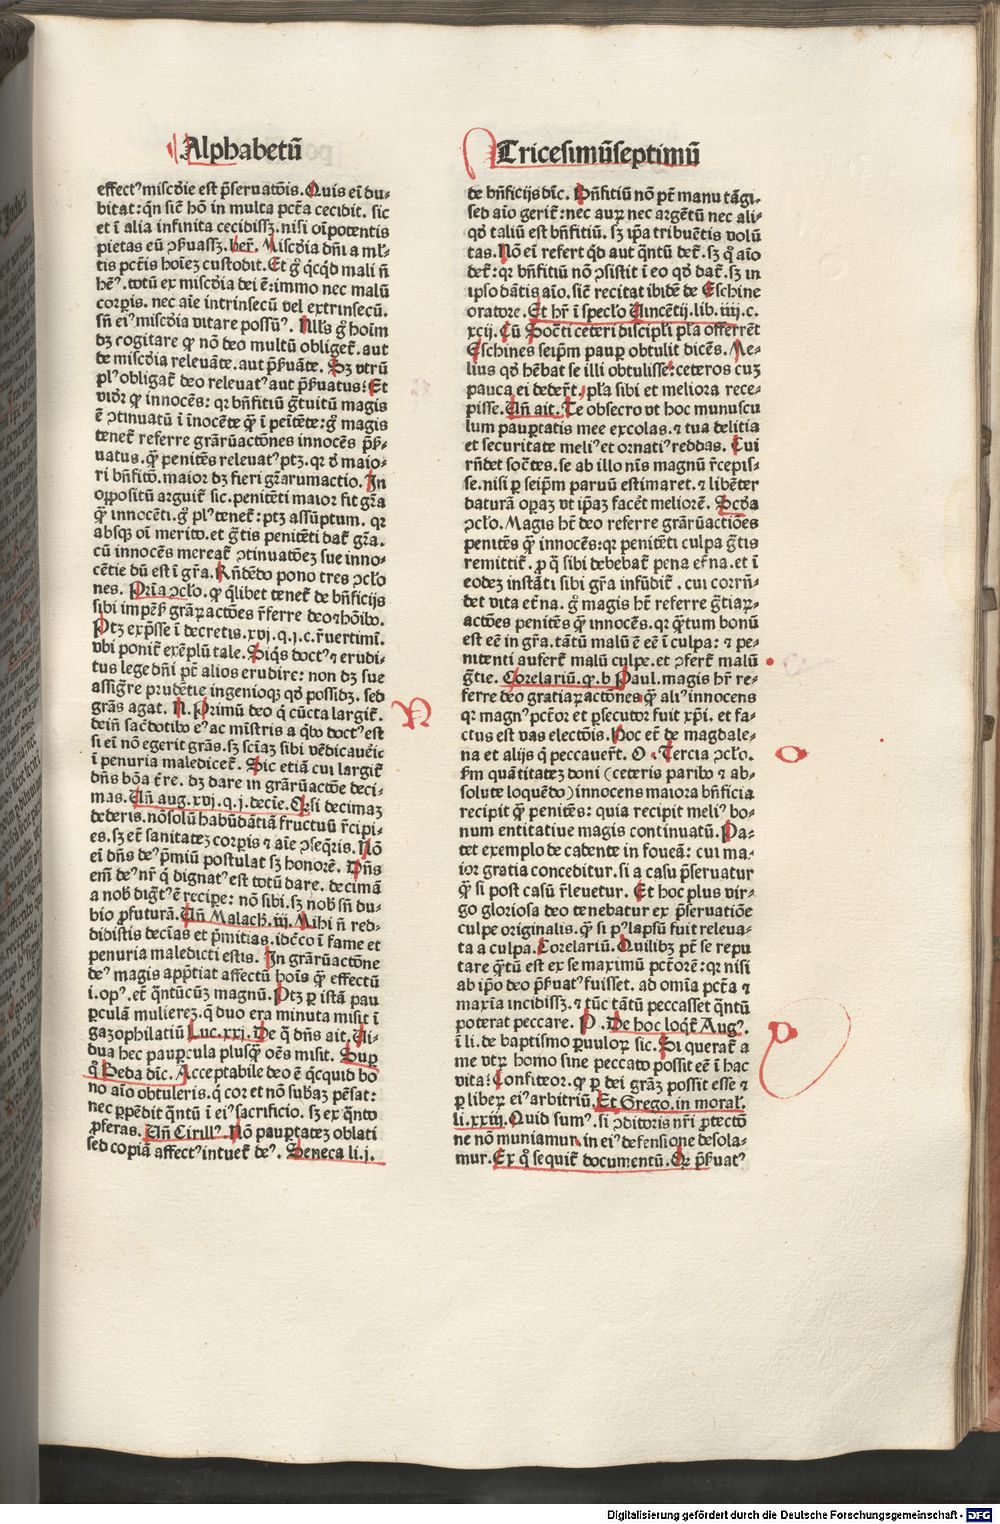 Alphabetū
effectꝰ miſcďie est p̄ſeruatōis. Quis ei du⸗
bitat: qn̄ ſic hō in multa pctā cecidit. ſic
et ī alia infinita cecidiſſꝫ. niſi oīpotentis
pietas eū ꝯẜuaſſꝫ. Ber. Miſcďia dn̄i a ml̓⸗
tis pctīs hoīeꝫ custodit. Et g̊ qͥcqͥd mali ñ
hēꝰ. totū ex miſcďia dei ē: immo nec malū
corpis. nec aīe intrinſecū vel extrinſecū.
ſn̄ eiꝰ miſcďia vitare poſſūꝰ. Nll̓s g̊ hoīm
dꝫ cogitare ꝙ nō deo multū obliget̄. aut
de miſcďia releuāte. aut p̄ẜuāte. Sꝫ vtrū
pl̓ꝰ obligat̄ deo releuatꝰ aut p̄ẜuatus? Et
vidr̄ ꝙ innocēs: qꝛ bn̄fitiū ḡtuitū magis
ē ꝯtinuatū ī īnocēte ꝙ̄ ī peītēte: g̊ magis
tenet̄ referre grārūactōnes innocēs p̄ẜ⸗
uatus. ꝙ̄ penitēs releuatꝰ ptꝫ. qꝛ ď maio⸗
ri bn̄fitō. maior dꝫ fieri gr̄arumactio. In
oppoſitū arguit̄ ſic. penitēti maior fit gr̄a
ꝙ̄ innocēti. g̊ pl̓ꝰ tenet̄: ptꝫ aſſūptum. qꝛ
absqꝫ oī merito. et ḡtis penitēti dat̄ gr̄a.
cū innocēs mereat̄ ꝯtinuatōeꝫ ſue inno⸗
cētie dū est ī gr̄a. Rn̄dēdo pono tres ꝯcl̓o
nes. Pria ꝯcl̓o. ꝙ qͥlibet tenet̄ de bn̄ficijs
ſibi impēſ̄ grāꝝactōes r̄ferre deo ⁊ hōibꝰ.
Ptꝫ expſſe ī decretis. xvj. q. j. c. r̄uertimī.
vbi ponit̄ exēplū tale. Siqͥs doctꝰ ⁊ erudi⸗
tus lege dn̄i p̄t alios erudire: non dꝫ ſue
aſſigr̄e prudētie ingenioqꝫ qď poſſidꝫ. ſed
grās agat. N. Primū deo q̄ cūcta largit̄.
dein̄ ſac̄dotibꝰ eꝰ ac mīstris a qͥbꝰ doctꝰ est
ſi eī nō egerit grās. ſꝫ ſciaꝫ ſibi vēdicauēīc
ī penuria maledicet̄. Sic etiā cui largit̄
dn̄s bōa t̄re. dꝫ dare in grārūactōe deci⸗
mas. Vn̄ aug. xvj. q. j. decīe. Qꝛ ſi decimaꝫ
dederis. nōſolū habūdātiā fructuū r̄cipi⸗
es. ſꝫ et̄ ſanitateꝫ corpis ⁊ aīe ꝯſeqͥris. Nō
eī dn̄s deꝰ p̄miū postulat ſꝫ honorē. Dn̄s
em̄ deꝰ nr̄ q̄ dignatꝰ est totū dare. decimā
a nob̄ digtꝰ ē recipe: nō ſibi. ſꝫ nob̄ ſn̄ du⸗
bio ꝓfuturā. Vn̄ Malach. iij. Mihi ñ red⸗
didistis decīas et p̄mitias. idc̄o ī fame et
penuria maledicti estis. In grārūactōne
deꝰ magis apptiat affectū hoīs ꝙ̄ effectū
i. opꝰ. et̄ qn̄tūcūꝫ magnū. Ptꝫ ꝑ istā pau
ꝑculā muliereꝫ. q̄ duo era minuta misit ī
gazophilatiū Luc. xxj. De q̄ dn̄s ait. Vi⸗
dua hec pauꝑcula plusqͣꝫ oēs misit. Suꝑ
qͦ Beda dīc. Acceptabile deo ē qͥcquid bo
no aīo obtuleris. q̄ cor et nō ſubaꝫ pēſat:
nec ꝑpēdit qn̄tū ī eiꝰ ſacrificio. ſꝫ ex qn̄to
ꝓferas. Vn̄ Cirillꝰ. Nō paupertateꝫ oblati
ſed copiā affectꝰ intuet̄ deꝰ. Seneca li. j.
N
Triceſimūſeptimū
de bn̄ficijs dīc. Bn̄fitiū nō p̄t manu tāgi.
ſed aīo gerit̄: nec auꝝ nec argētū nec ali⸗
qď taliū est bn̄fitiū. ſꝫ ip̄a tribuētis volū
tas. Nō eī refert qͥd aut qn̄tū det̄. ſꝫ qͦ aīo
det̄: qꝛ bn̄fitiū nō ꝯſistit ī eo qď dat̄. ſꝫ in
ipſo dātis aīo. ſiē recitat ibidē de Eſchine
oratore. Et hr̄ ī ſpecl̓o Vincētij. lib. iiij. c.
xcij. Cū Socrati ceteri diſcipl̓i pl̓a offerrēt
Eſchines ſeipm̄ pauꝑ obtulit dicēs. Me⸗
lius qď hēbat ſe illi obtuliſſe: ceteros cuꝫ
pauca ei dederīt. pl̓a ſibi et meliora rece⸗
piſſe. Vn̄ ait. Te obſecro vt hoc munuſcu
lum pauꝑtatis mee excolas. ⁊ tua delitia
et ſecuritate meliꝰ et ornatiꝰ reddas. Cui
rn̄det ſoc̄tes. ſe ab illo nīs magnū r̄cepiſ⸗
ſe. niſi ꝑ ſeipm̄ paruū estimaret. ⁊ libēter
daturā opaꝫ vt ip̄aꝫ facēt meliorē. Scďa
ꝯcl̓o. Magis hr̄ deo referre grārūactiōes
penitēs ꝙ̄ innocēs: qꝛ penitēti culpa ḡtis
remittit̄. ꝓ q̄ ſibi debebat̄ pena et̄na. et ī
eodeꝫ instāti ſibi gr̄a infūdit̄. cui corrn̄⸗
det vita et̄na. g̊ magis hr̄ referre ḡtiaꝝ⸗
actōes penitēs ꝙ̄ innocēs. qꝛ qͣtum bonū
est eē in gr̄a. tātū malū ē eē ī culpa: ⁊ pe⸗
nitenti aufert̄ malū culpe. et ꝯfert̄ malū
ḡtie. Corelariū. ꝙ. b Paul. magis hr̄ re⸗
ferre deo gratiaꝝactōnes ꝙ̄ aliꝰ innocens
qꝛ magnꝰ pctōr et ꝑſecutor fuit xp̄i. et fa⸗
ctus est vas electōis. Hoc et̄ de magdale⸗
na et alijs q̄ peccauer̄t. O. Tercia ꝯcl̓o.
ẜm quātitateꝫ doni (ceteris paribꝰ ⁊ ab⸗
ſolute loquēdo) innocens maiora bn̄ficia
recipit ꝙ̄ penitēs: quia recipit meliꝰ bo⸗
num entitatiue magis continuatū. Pa⸗
tet exemplo de cadente in foueā: cui ma⸗
ior gratia conceditur. ſi a caſu p̄ſeruatur
ꝙ̄ ſi post caſū r̄leuetur. Et hoc plus vir⸗
go glorioſa deo tenebatur ex p̄ſeruatiōe
culpe originalis. ꝙ̄ ſi pꝰ lapſū fuit releua⸗
ta a culpa. Corelariū. Quilibꝫ p̄t ſe repu
tare qͣtū est ex ſe maximū pctōrē: qꝛ niſi
ab ipō deo p̄ẜuatꝰ fuiſſet. ad omīa pctā ⁊
maxīa incidiſſꝫ. ⁊ tūc tātū peccaſſet qn̄tū
poterat peccare. P. De hoc loqͥt̄ Augꝰ.
ī li. de baptiſmo ꝑuuloꝝ ſic. Si querat̄ a
me vtꝝ homo ſine peccato poſſit eē ī hac
vita? Confiteor. ꝙ ꝑ dei grāꝫ poſſit eſſe ⁊
ꝑ libeꝝ eiꝰ arbitriū. Et Grego. in moral̓.
li. xxiij. Quid ſumꝰ. ſi ꝯditoris nr̄i ꝓtectō
ne nō muniamur. in eiꝰ defenſione deſola⸗
mur. Ex qͦ ſequit̄ documentū. Qꝛ p̄ẜuatꝰ
O
P
Digitalisierung gefördert durch die Deutsche Forschungsgemeinschaft - DFG